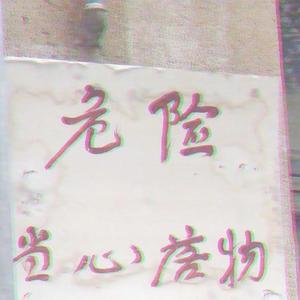 危险
当心落物